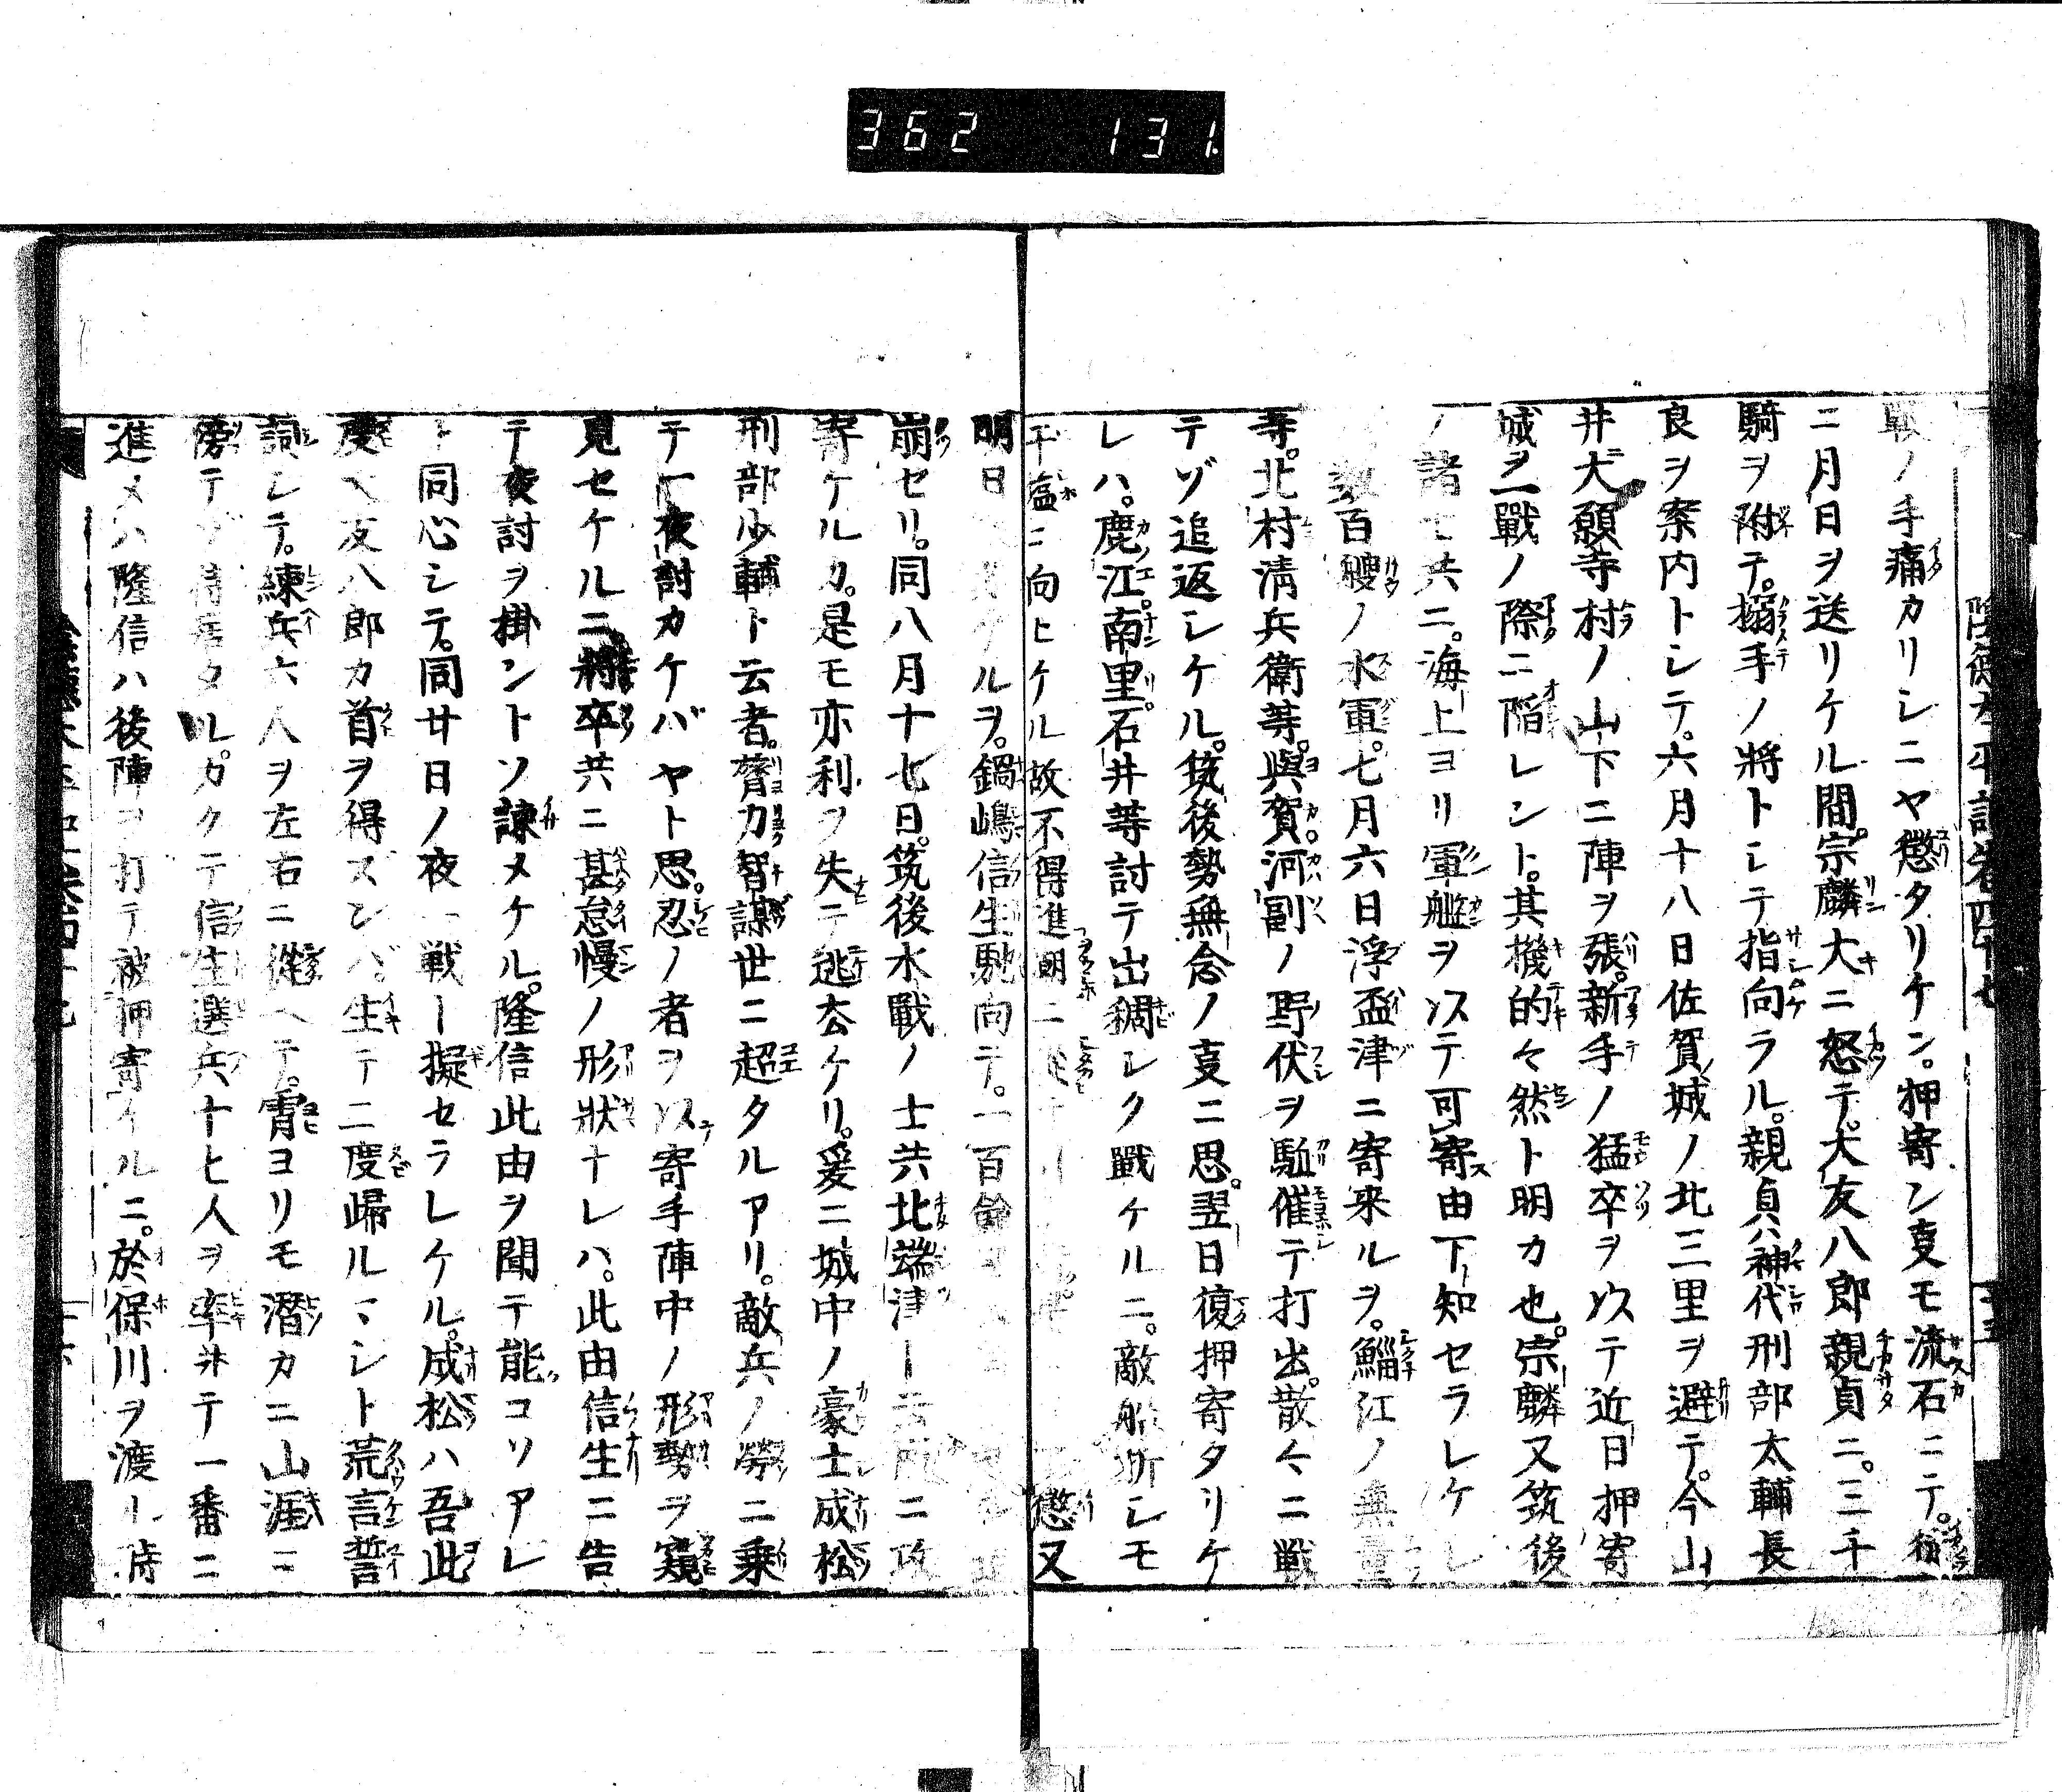 362 131
陰德太平記卷四十七
戰ノ手痛カリシニヤ懲タリケン。押寄ン叓モ流石ニテ。
ニ月日ヲ送リケル間。宗麟大ニ怒テ。大友八郎親貞ニ。三千
騎ヲ附テ。搦手ノ將トシテ指向ラル。親貞ハ神代刑部太輔長
良ヲ案内トシテ。六月十八日佐賀城ノ北三里ヲ避テ。今山
井大願寺村ノ山下ニ陣ヲ張。新手ノ猛卒ヲ以テ近日押寄
城ヲ一戰ノ際ニ陷レント。其機的々然ト明カ也。宗麟又筑後
ノ諸士共ニ。海上ヨリ軍艦ヲ以テ可寄由下知セラレケレ
数百艘ノ水軍。七月六日浮盃津ニ寄来ルヲ。鯔江ノ無量
等。北村清兵衛等。與賀。河副ノ野伏ヲ駈催テ打出。散々ニ戦
テゾ追返シケル。筑後勢無念ノ叓ニ思。翌日復押寄タリケ
レハ。鹿江。南里。石井等討テ出稠シク戰ケルニ。敵船漸レモ
干塩ニ向ヒケル故不得進 懲又
明日 ケルヲ。鍋嶋信生馳向テ。一百餘
崩セリ。同八月十七日。筑後水戰ノ士共北端津ー云所ニ攻
寄ケルカ。是モ亦利ヲ失テ逃去ケリ。爰ニ城中ノ豪士成松
刑部少輔ト云者。膂力智謀世ニ超タルアリ。敵兵ノ勞ニ乗
テ一夜討カケバヤト思。忍ノ者ヲ以寄手陣中ノ形勢ヲ窺
見セケルニ將卒共ニ甚怠慢ノ形狀ナレハ。此由信生ニ告
テ夜討ヲ掛ントソ諌メケル。隆信此由ヲ聞テ能コソアレ
ト同心シテ。同廿日ノ夜一戦ー擬セラレケル。成松ハ吾此
度大友八郎カ首ヲ得ズンバ。生テ二度歸ルマシト荒言誓
詞シテ。練兵六人ヲ左右ニ從ヘテ。宵ヨリモ潛カニ山涯ニ
傍テゾ待居タル。カクテ信生選兵十七人ヲ率并テ一番ニ
進メハ隆信ハ後陣ヲ打テ被押寄イルニ。於保川ヲ渡ル時